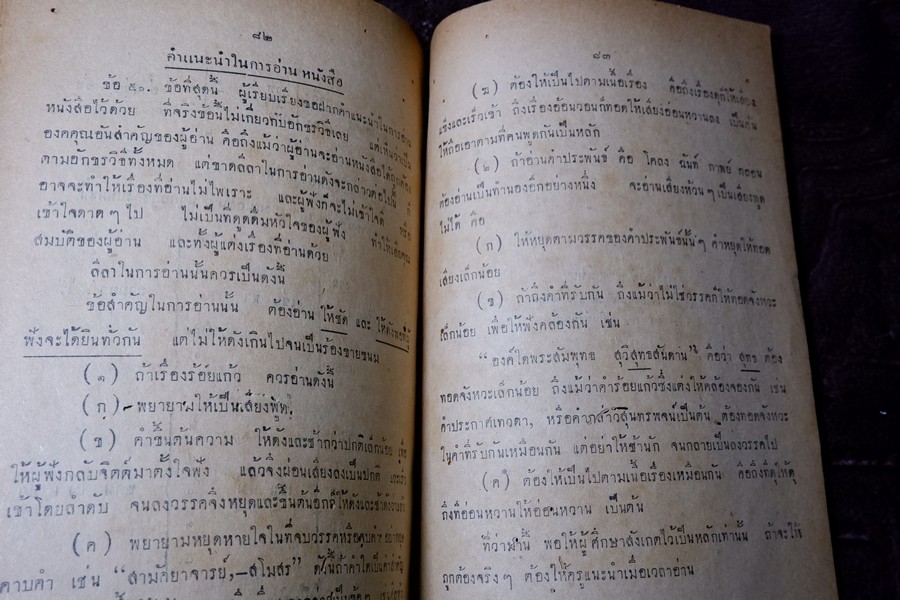 ๘๒
คำแนะนำในการอ่านหนังสือ
ข้อ ๕๐. ข้อที่สุดนี้ ผู้เรียบเรียงขอฝากคำแนะนำในการอ่าน
หนังสือไว้ด้วย ที่จริงข้อนี้ไม่เกี่ยวกับอักขรวิธีเลย แต่เห็นว่าเป็น
องคคุณอันสำคัญของผู้อ่าน คือถึงแม้ว่าผู้อ่านจะอ่านหนังสือได้ถูกต้อง
ตามอักขรวิธีทั้งหมด แต่ขาดลีลาในการอ่านดังจะกล่าวต่อไปนี้ ก็
อาจจะทำให้เรื่องที่อ่านไม่ไพเราะ และผู้ฟังก็จะไม่เข้าใจดี หรือ
เข้าใจคาด ๆ ไป ไม่เป็นที่ดูดดื่มหัวใจของผู้ฟัง ทำให้เสียคุณ
สมบัติของผู้อ่าน และทั้งผู้แต่งเรื่องที่อ่านด้วย
ลีลาในการอ่านนั้นควรเป็นดังนี้
ข้อสำคัญในการอ่านนั้น ต้องอ่าน ให้ชัด และ ให้ดังพอที่ผู้
ฟังจะได้ยินทั่วกัน แต่ไม่ให้ดังเกินไปจนเป็นร้องขายขนม
(๑) ถ้าเรื่องร้อยแก้ว ควรอ่านดังนี้
(ก) พยายามให้เป็นเสียงพูด
(ข) คำขึ้นต้นความ ให้ดังและช้ากว่าปกติเล็กน้อย เพื่อ
ให้ผู้ฟังกลับจิตต์มาตั้งใจฟัง แล้วจึงผ่อนเสียงลงเป็นปกติ และเร็ว
เข้าโดยลำดับ จนลงวรรคจึงหยุดและขึ้นต้นอีกก็ให้ดังและช้าดัง
(ค) พยายามหยุดหายใจในที่จบวรรคหรือจบคำ อย่าหยุด
คาบคำ เช่น “สามัคยาจารย์,–สโมสร” ดังนี้ถ้าคำใดเป็นคำสำคัญ
๘๓
(ฆ) ต้องให้เป็นไปตามเนื้อเรื่อง คือถึงเรื่องดุก็ให้เสียง
แข็งและเร็วเข้า ถึงเรื่องอ้อนวอนก็ทอดให้เสียงอ่อนหวานลง เป็นต้น
ให้ถือเอาตามที่คนพูดกันเป็นหลัก
(๒) ถ้าอ่านคำประพันธ์ คือ โคลง ฉันท์ กาพย์ กลอน
ต้องอ่านเป็นทำนองอีกอย่างหนึ่ง จะอ่านเสียงห้วน ๆ เป็นเสียงพูด
ไม่ได้ คือ
(ก) ให้หยุดตามวรรคของคำประพันธ์นั้น ๆ คำหยุดให้ทอด
เสียงเล็กน้อย
(ข) ถ้าถึงคำที่รับกัน ถึงแม้ว่าไม่ใช่วรรคก็ให้ทอดจังหวะ
เล็กน้อย เพื่อให้ฟังคล้องกัน เช่น
“องค์ใดพระสัมพุทธ สุวิสุทธสันดาน” คือว่า สุทธ ต้อง
ทอดจังหวะเล็กน้อย ถึงแม้ว่าคำร้อยแก้วซึ่งแต่งให้คล้องจองกัน เช่น
คำประกาศเทวดา, หรือคำกล่าวสุนทรพจน์เป็นต้น ต้องทอดจังหวะ
ในคำที่รับกันเหมือนกัน แต่อย่าให้ช้านัก จนกลายเป็นลงวรรคไป
(ค) ต้องให้เป็นไปตามเนื้อเรื่องเหมือนกัน คือถึงที่ดุให้ดุ
ถึงที่อ่อนหวานให้อ่อนหวาน เป็นต้น
ที่ว่ามานี้ พอให้ผู้ศึกษาสังเกตไว้เป็นหลักเท่านั้น ถ้าจะให้
ถูกต้องจริง ๆ ต้องให้ครูแนะนำเมื่อเวลาอ่าน